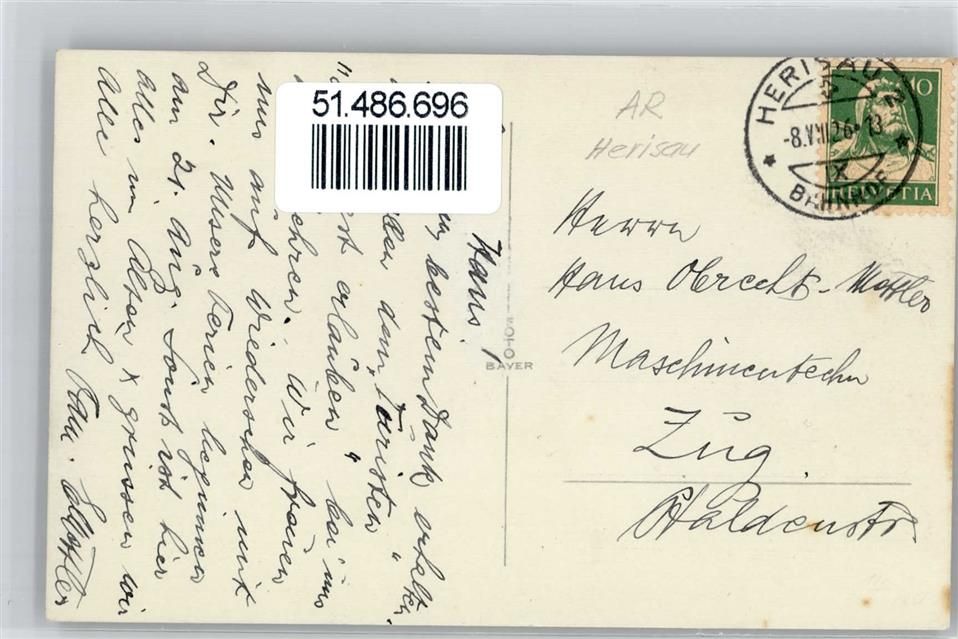 51.486.696
AR
Herisau
HERISAU 2
-8.VIII.26-13
X
BAHNHOF
10
HELVETIA
BAYER
Herrn
Hans Obrecht-Mettler
Maschinentechn
Zug
Haldenstr
Hans!
besten Dank erhalten
den "Touristen"
erlauben" bei uns
kehren. Wir freuen
uns auf Wiedersehen mit
Dir. Unsere Ferien beginnen
am 21. Aug. Sonst ist hier
alles im Alten & grüssen wir
alle herzlich Fam. Mettler